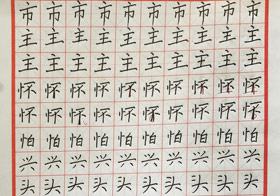 市市市市市市市市市
主主主主主主主主主
主主主主主主主主主
怀怀怀怀怀怀怀怀怀
怀怀怀怀怀怀怀怀怀
怕怕怕怕怕怕怕怕怕
兴兴兴兴兴兴兴兴兴
头头头头头头头头头